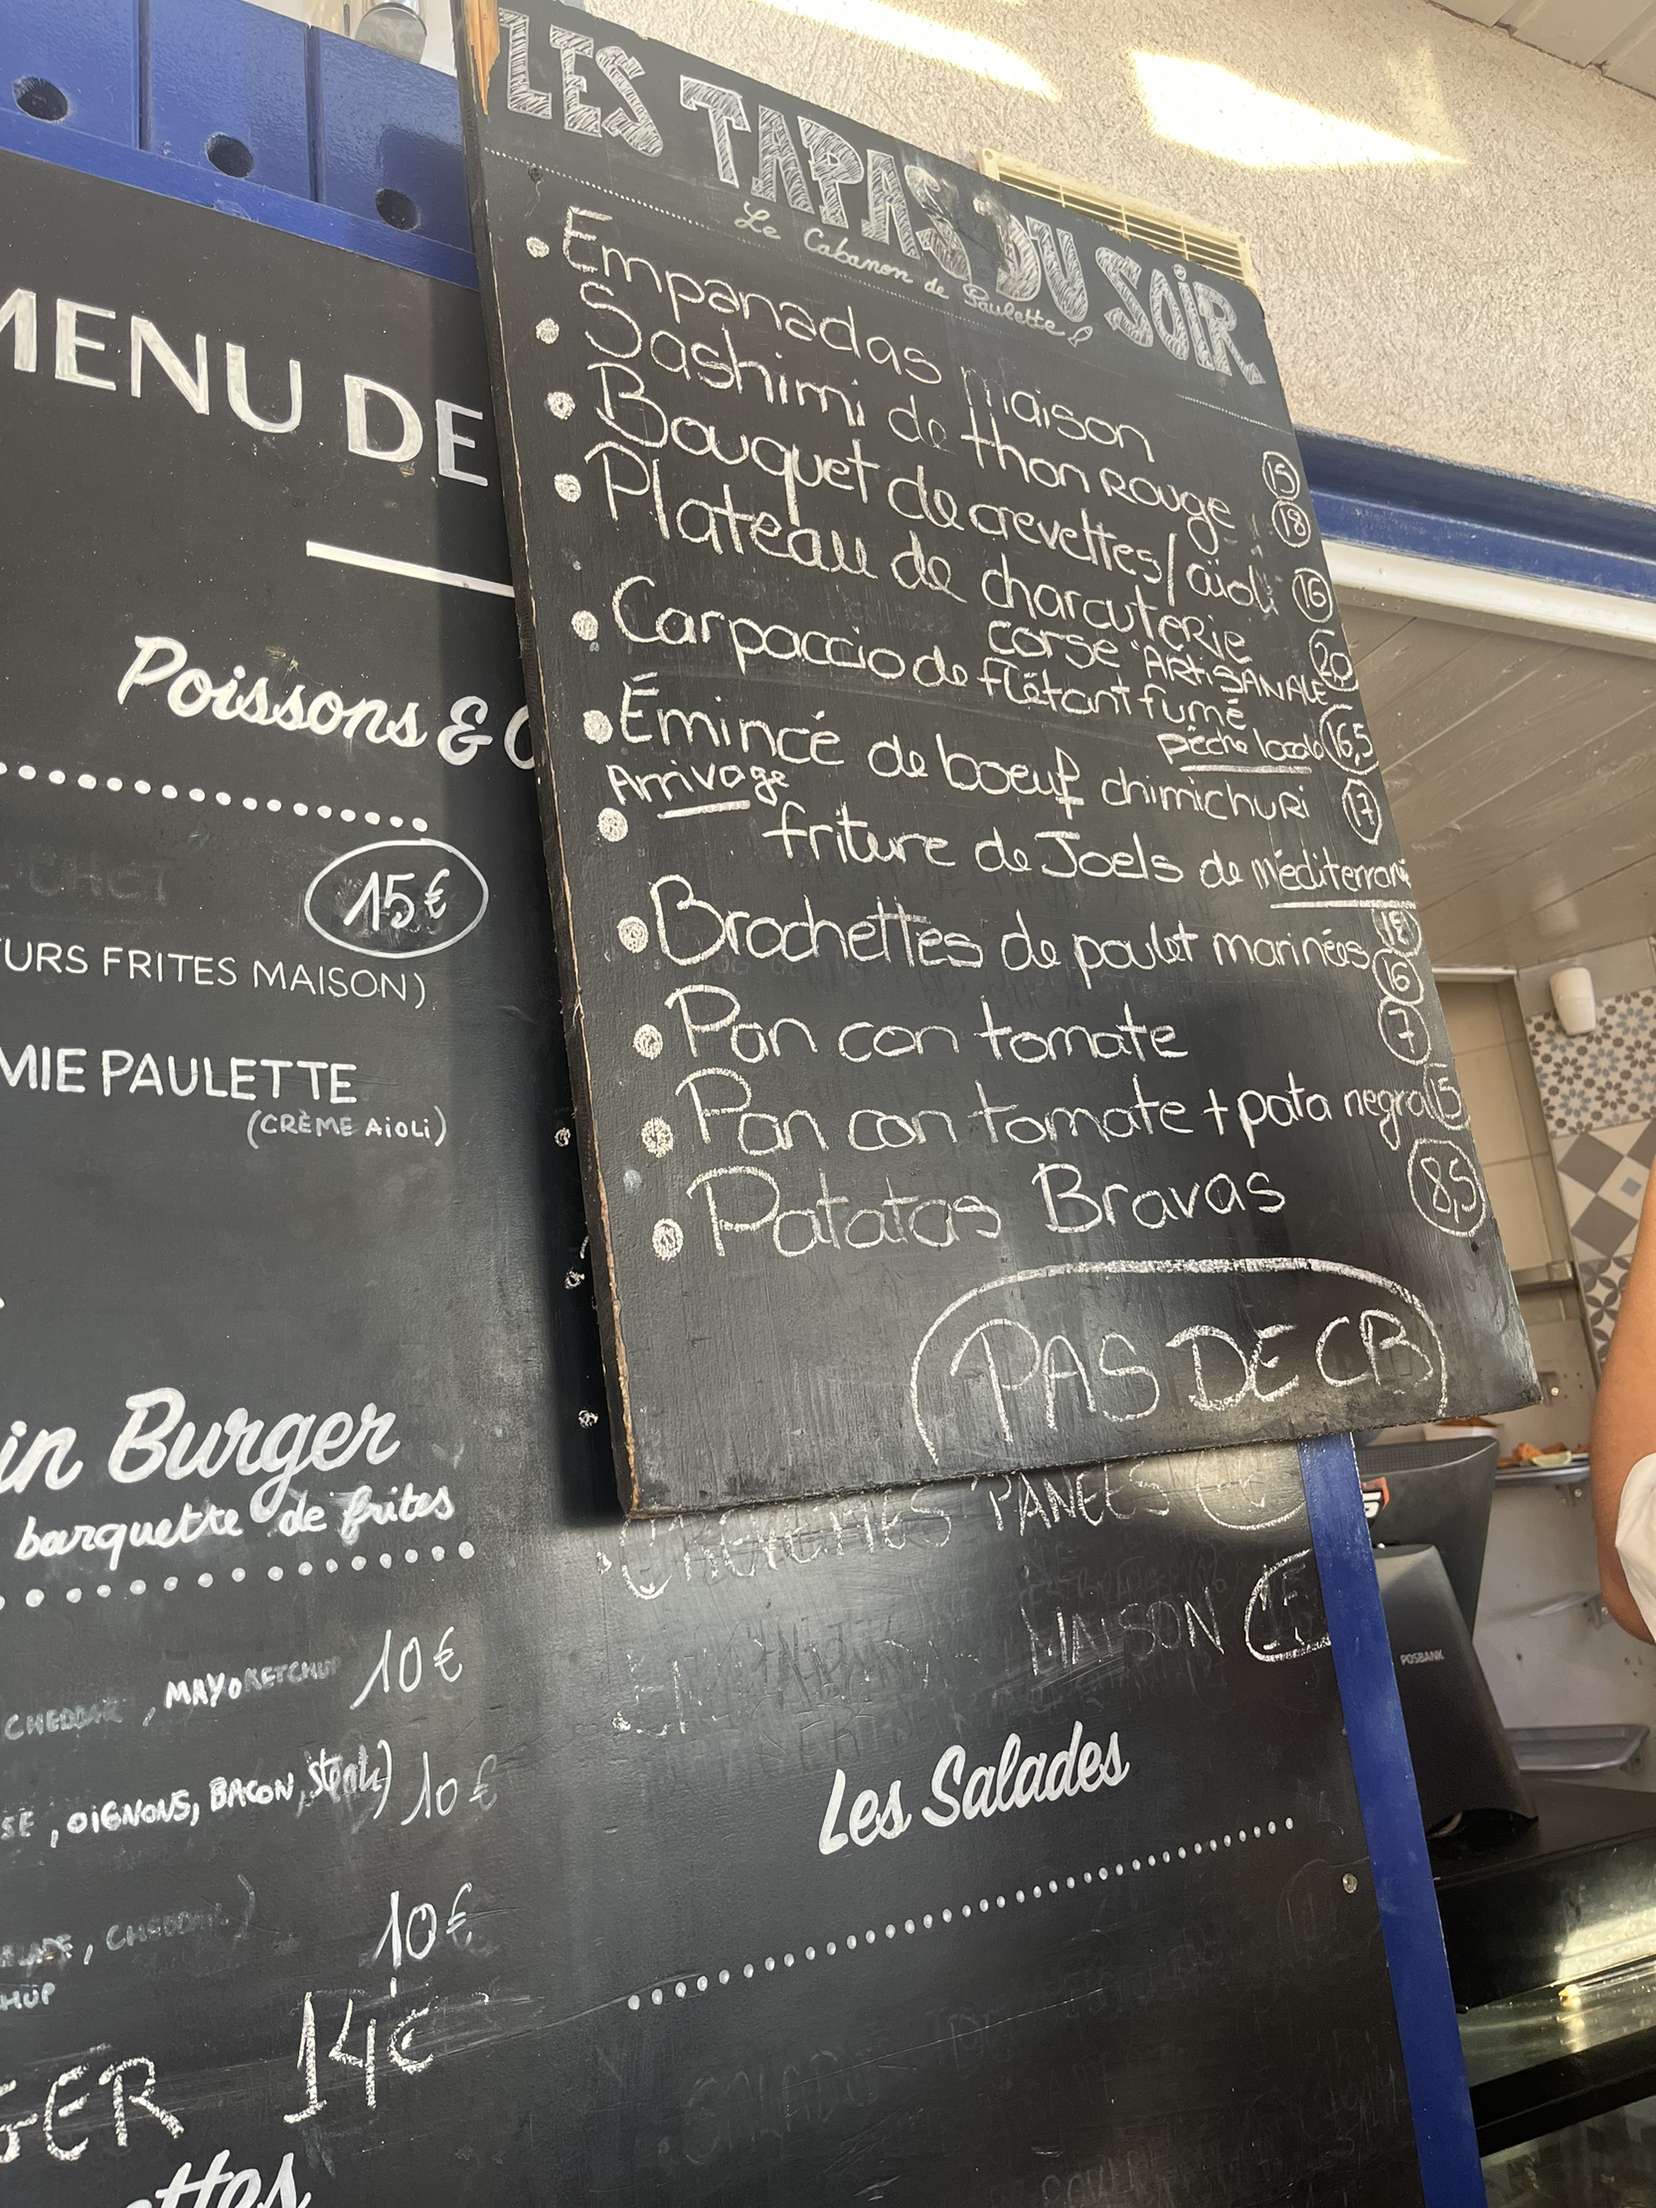 LES TAPAS DU SOIR
Le Cabanon de Paulette
• Empanadas maison 15
• Sashimi de thon Rouge 18
• Bouquet de crevettes/aïoli 16
• Plateau de charcuterie 20
corse ARTISANALE
• Carpaccio de flétant fumé 16,5
pêche locale
• Émincé de boeuf chimichuri 17
Arrivage
• friture de Joels de Méditerrané 18
• Brochettes de poulet marinées 16
• Pan con tomate 7
• Pan con tomate + pata negra 15
• Patatas Bravas 8,5
PAS DE CB
MENU DE
Poissons &
15€
URS FRITES MAISON)
MIE PAULETTE
(CRÈME AïOLi)
in Burger
barquette de frites
CHEDDAR, MAYO KETCHUP 10€
SE, OIGNONS, BACON, Steak) 10€
, CHEDDAR) 10€
HUP
GER 14€
ettes
CREVETTES PANÉES
MAISON 15
Les Salades
POSBANK